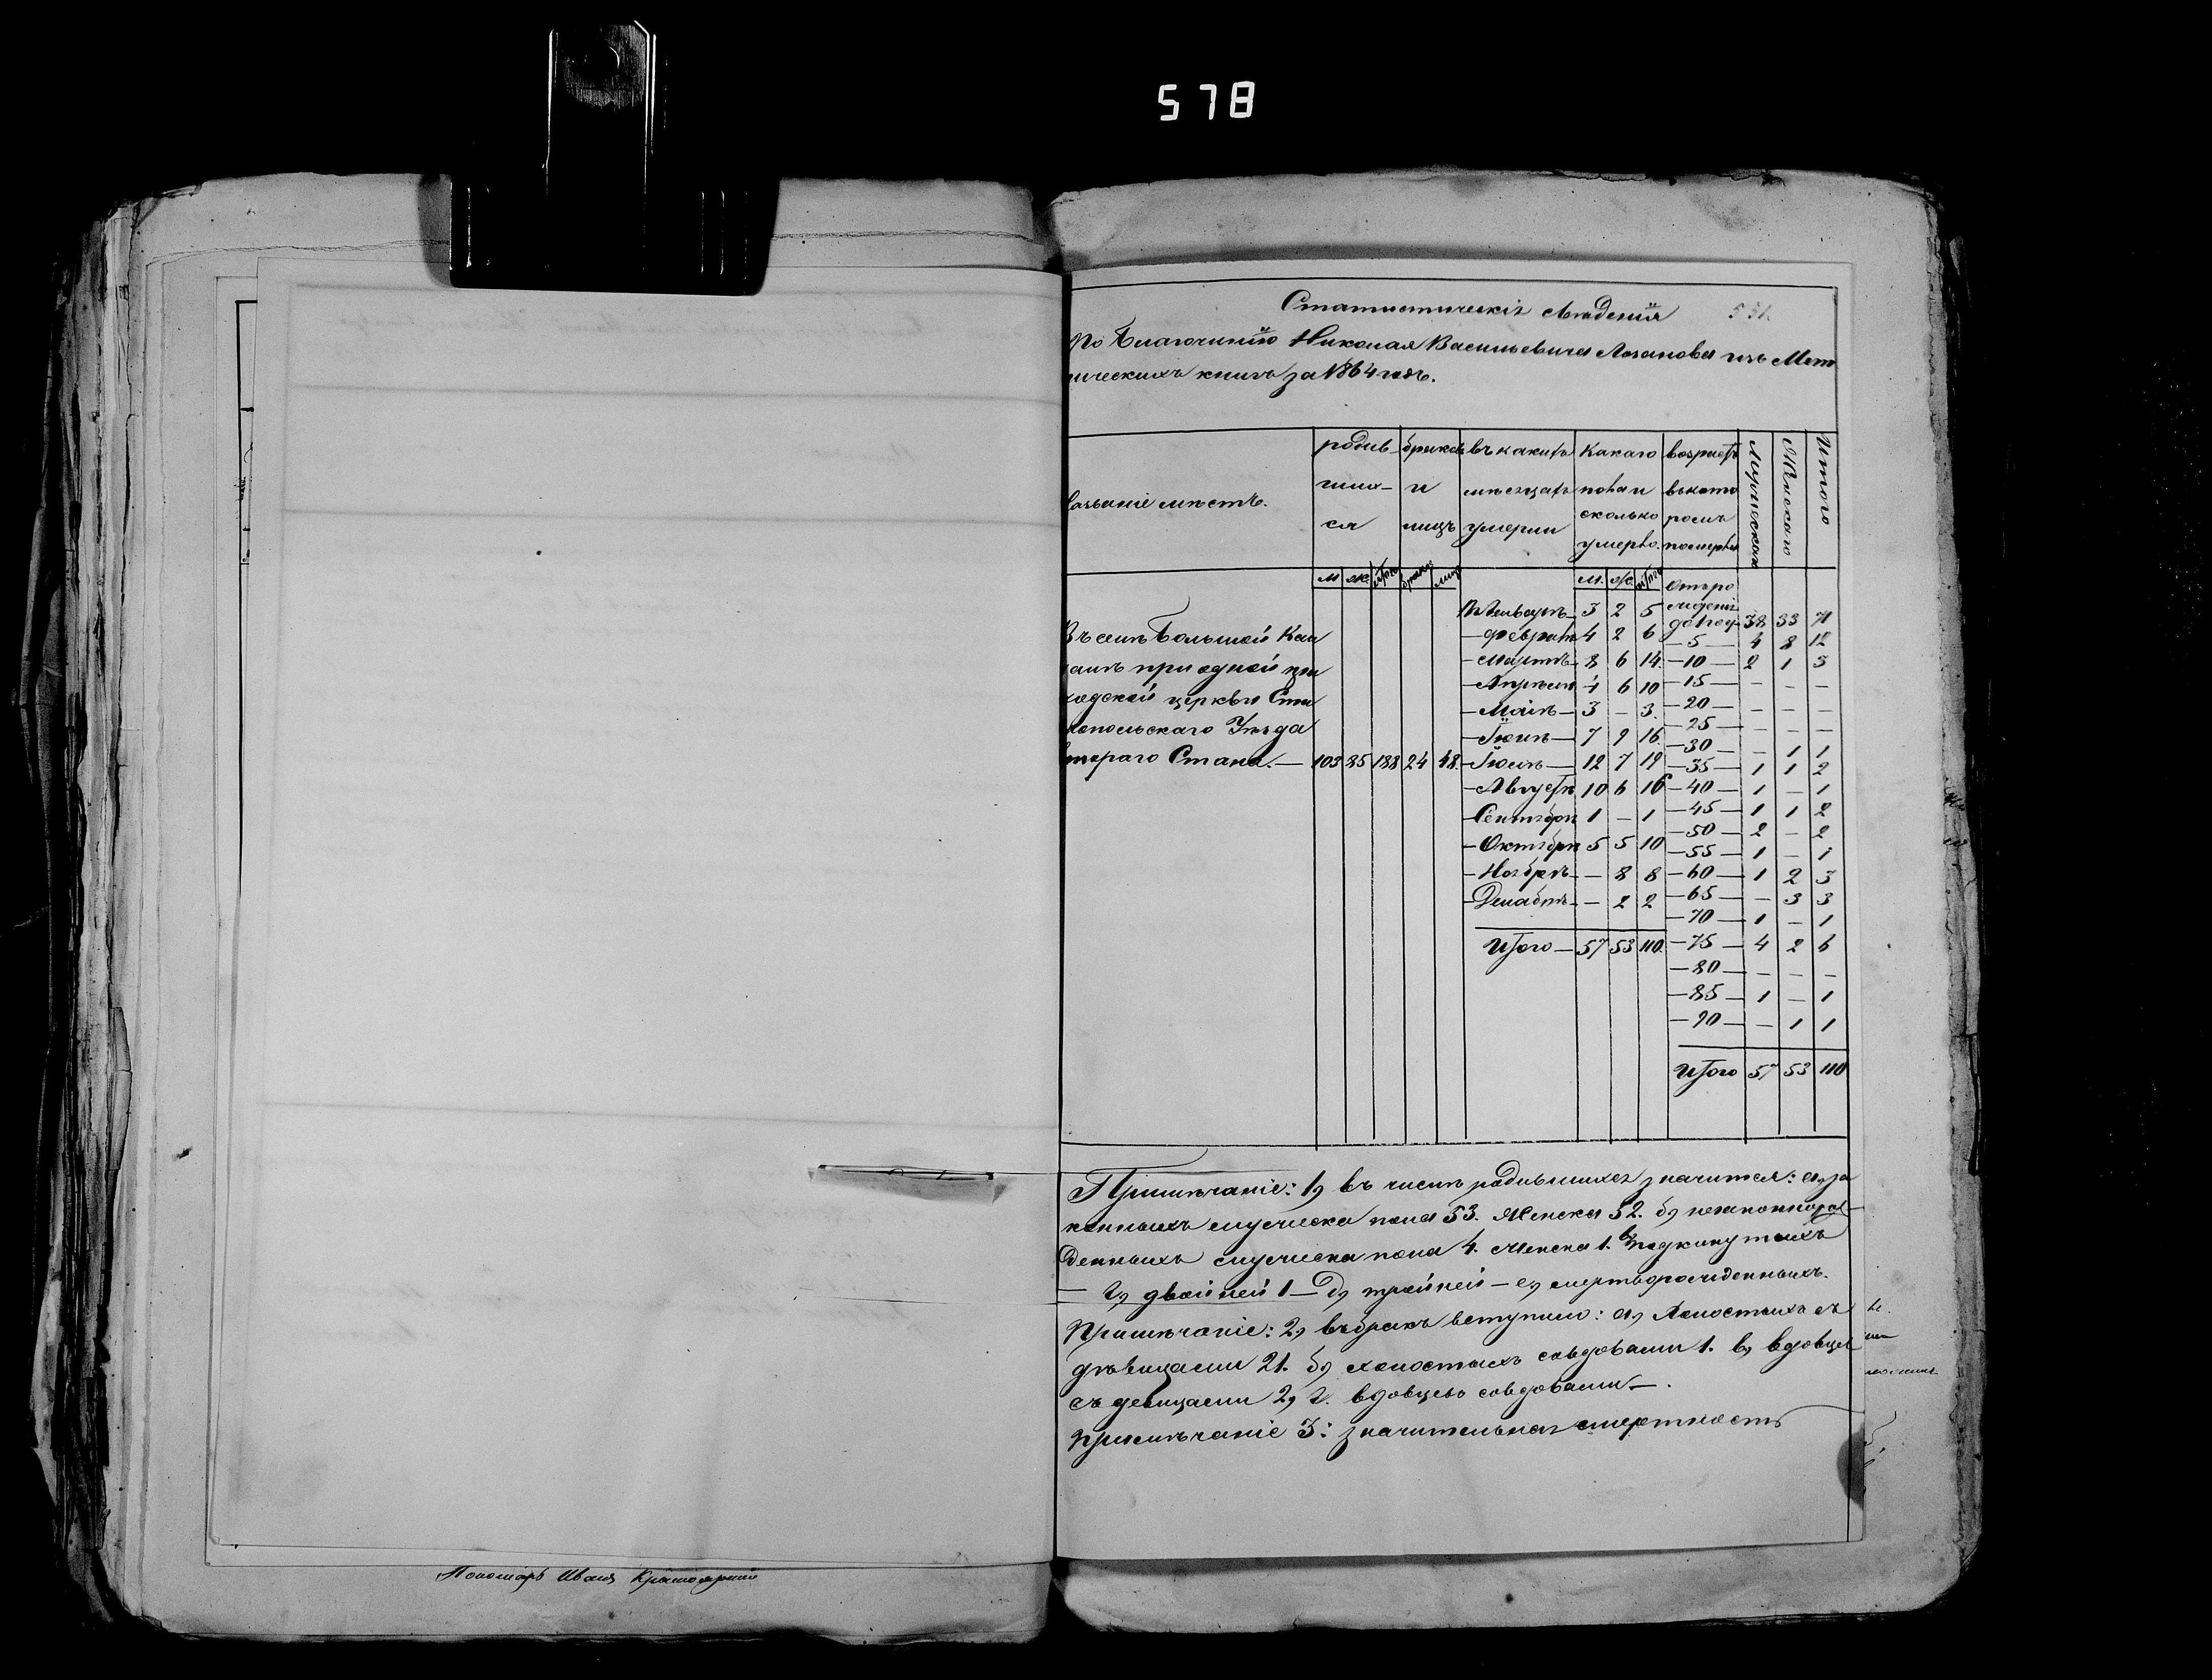 578
Статистическія свѣденія
По Благочинію Николая Васильевича Лозанова изъ Мет
ическихъ книгъ за 1864 годъ.
азваніе мѣстъ.
родив- шихся
браковъ и лицъ
въ какихъ мѣсяцахъ умерли
Какаго пола и сколько умерло.
возрастъ въ кото ромъ померли
Мужескаго
Женскаго
Итого
м ж итого браковъ лицъ
м. ж. итого
Въ селѣ Большой Кан
при одной при
ходской церкви Ста
вропольскаго Уѣзда
втораго Стана. — 103 85 188 24 48.
Въ Генварѣ 3 2 5
— Февралѣ 4 2 6
— Мартѣ 8 6 14.
— Апрѣлѣ 4 6 10
— Маіѣ — 3 — 3.
— Іюнѣ — 7 9 16
— Іюлѣ — 12 7 19
— Августѣ 10 6 16
— Сентябрѣ 1 — 1
— Октябрѣ 5 5 10
— Ноябрѣ — — 8 8
— Декабрѣ — — 2 2
Итого — 57 53 110.
Отъ ро
жденія
до 38 33 71
— 5 — 4 8 12
— 10 — 2 1 3
— 15 — — — —
— 20 — — — —
— 25 — — — —
— 30 — — 1 1
— 35 — 1 1 2
— 40 — 1 — 1
— 45 — 1 1 2
— 50 — 2 — 2
— 55 — 1 — 1
— 60 — 1 2 3
— 65 — — 3 3
— 70 — 1 — 1
— 75 — 4 2 6
— 80 — — — —
— 85 — 1 — 1
— 90 — — 1 1
Итого 57 53 110
Примѣчаніе: 1, въ числѣ родившихся значится: а, за
конныхъ мужеска пола 53. Женска 52. б, незаконнорож
денныхъ мужеска пола 4. Женска 1. в, подкинутыхъ
— г, двойней 1 — д, тройней — е, мертворожденныхъ.
Примѣчаніе: 2, въ бракъ вступило: а, Холостыхъ съ
дѣвицами 21. б, холостыхъ со вдовами 1. в, вдовцевъ
съ девицами 2, г. вдовцевъ со вдовами — .
Примѣчаніе 3: значительная смертность
Пономарь Иванъ